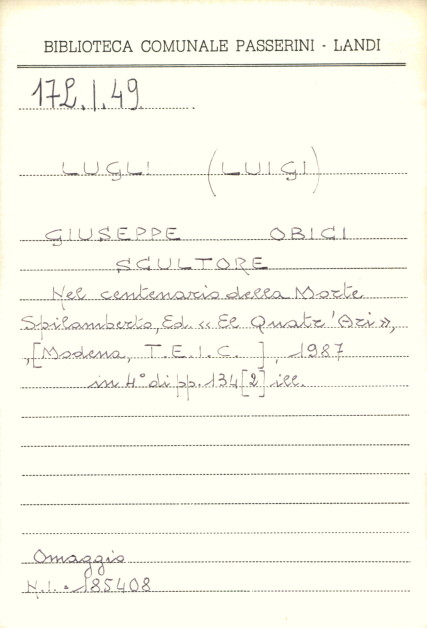 BIBLIOTECA COMUNALE PASSERINI - LANDI
172.I.49.
LUGLI (LUIGI)
GIUSEPPE OBICI
SCULTORE
Nel centenario della Morte
Spilamberto, Ed. « El Quatr 'Ari »,
,[Modena, T.E.I.C. ], 1987
in 4° di pp. 134[2] ill.
Omaggio
N.I. = 185408